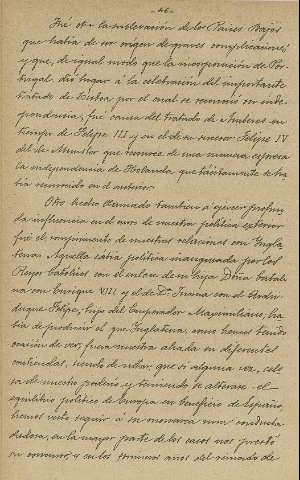 - 46 -
Fué otro la sublevación de los Países Bajos
que había de ser origen de graves complicaciones
y que, de igual modo que la incorporación de Por-
tugal, dió lugar á la celebración del importante
tratado de Lisboa por el cual se reconoció su inde-
pendencia, fué causa del tratado de Amberes en
tiempo de Felipe III y en el de su sucesor Felipe IV
del de Munster que reconoce de una manera expresa
la independencia de Holanda, que tácitamente se ha-
bía reconocido en el anterior.
Otro hecho llamado también á ejercer profun-
da influencia en el curso de nuestra política exterior
fué el rompimiento de nuestras relaciones con Ingla-
terra. Aquella sabia política inaugurada por los
Reyes Católicos con el enlace de su hija Doña Catali-
na con Enrique VIII y el de Dª Juana con el Archi-
duque Felipe, hijo del Emperador Maximiliano, ha-
bía de producir el que Inglaterra, como hemos tenido
ocasión de ver, fuera nuestra aliada en diferentes
contiendas, siendo de notar, que si alguna vez, celo-
sa de nuestro poderío y temiendo se alterase el
equilibrio político de Europa en beneficio de España,
hemos visto seguir á su monarca una conducta
dudosa, en la mayor parte de los casos nos prestó
su concurso, y en los primeros años del reinado de